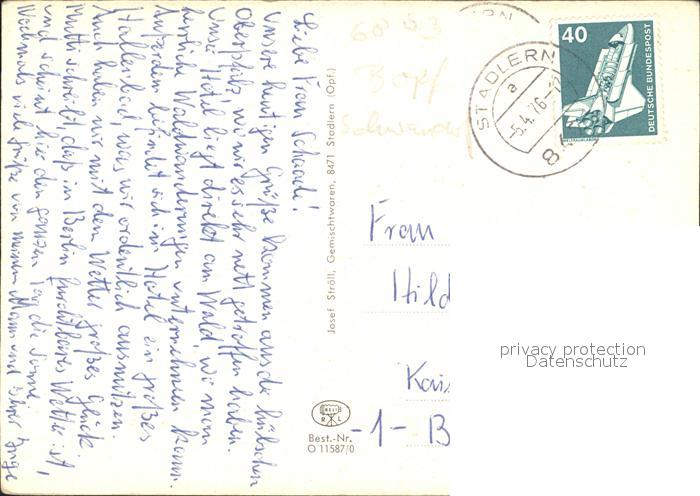 Liebe Frau Schaade!
Unsere heutigen Grüße kommen aus der hübschen
Oberpfalz, wo wir es sehr nett getroffen haben.
Unser Hotel liegt direkt am Wald, wo man
herrliche Waldwanderungen unternehmen kann.
Außerdem befindet sich im Hotel ein großes
Hallenbad, was wir ordentlich ausnutzen.
Auch haben wir mit dem Wetter großes Glück.
Mutti schreibt, daß in Berlin furchtbares Wetter ist,
und scheint hier den ganzen Tag die Sonne.
Nochmals viele Grüße von meinem Mann und Ihrer Inge
Josef Ströll, Gemischtwaren, 8471 Stadlern (Opf.)
BEIL
R L
Best.-Nr.
O 11587/0
68 83
30pf
Schwandorf
STADLERN
a
-6.4.76
8
40
DEUTSCHE BUNDESPOST
WELTRAUMLABOR
Frau
Hild
Kais
-1- B
privacy protection
Datenschutz